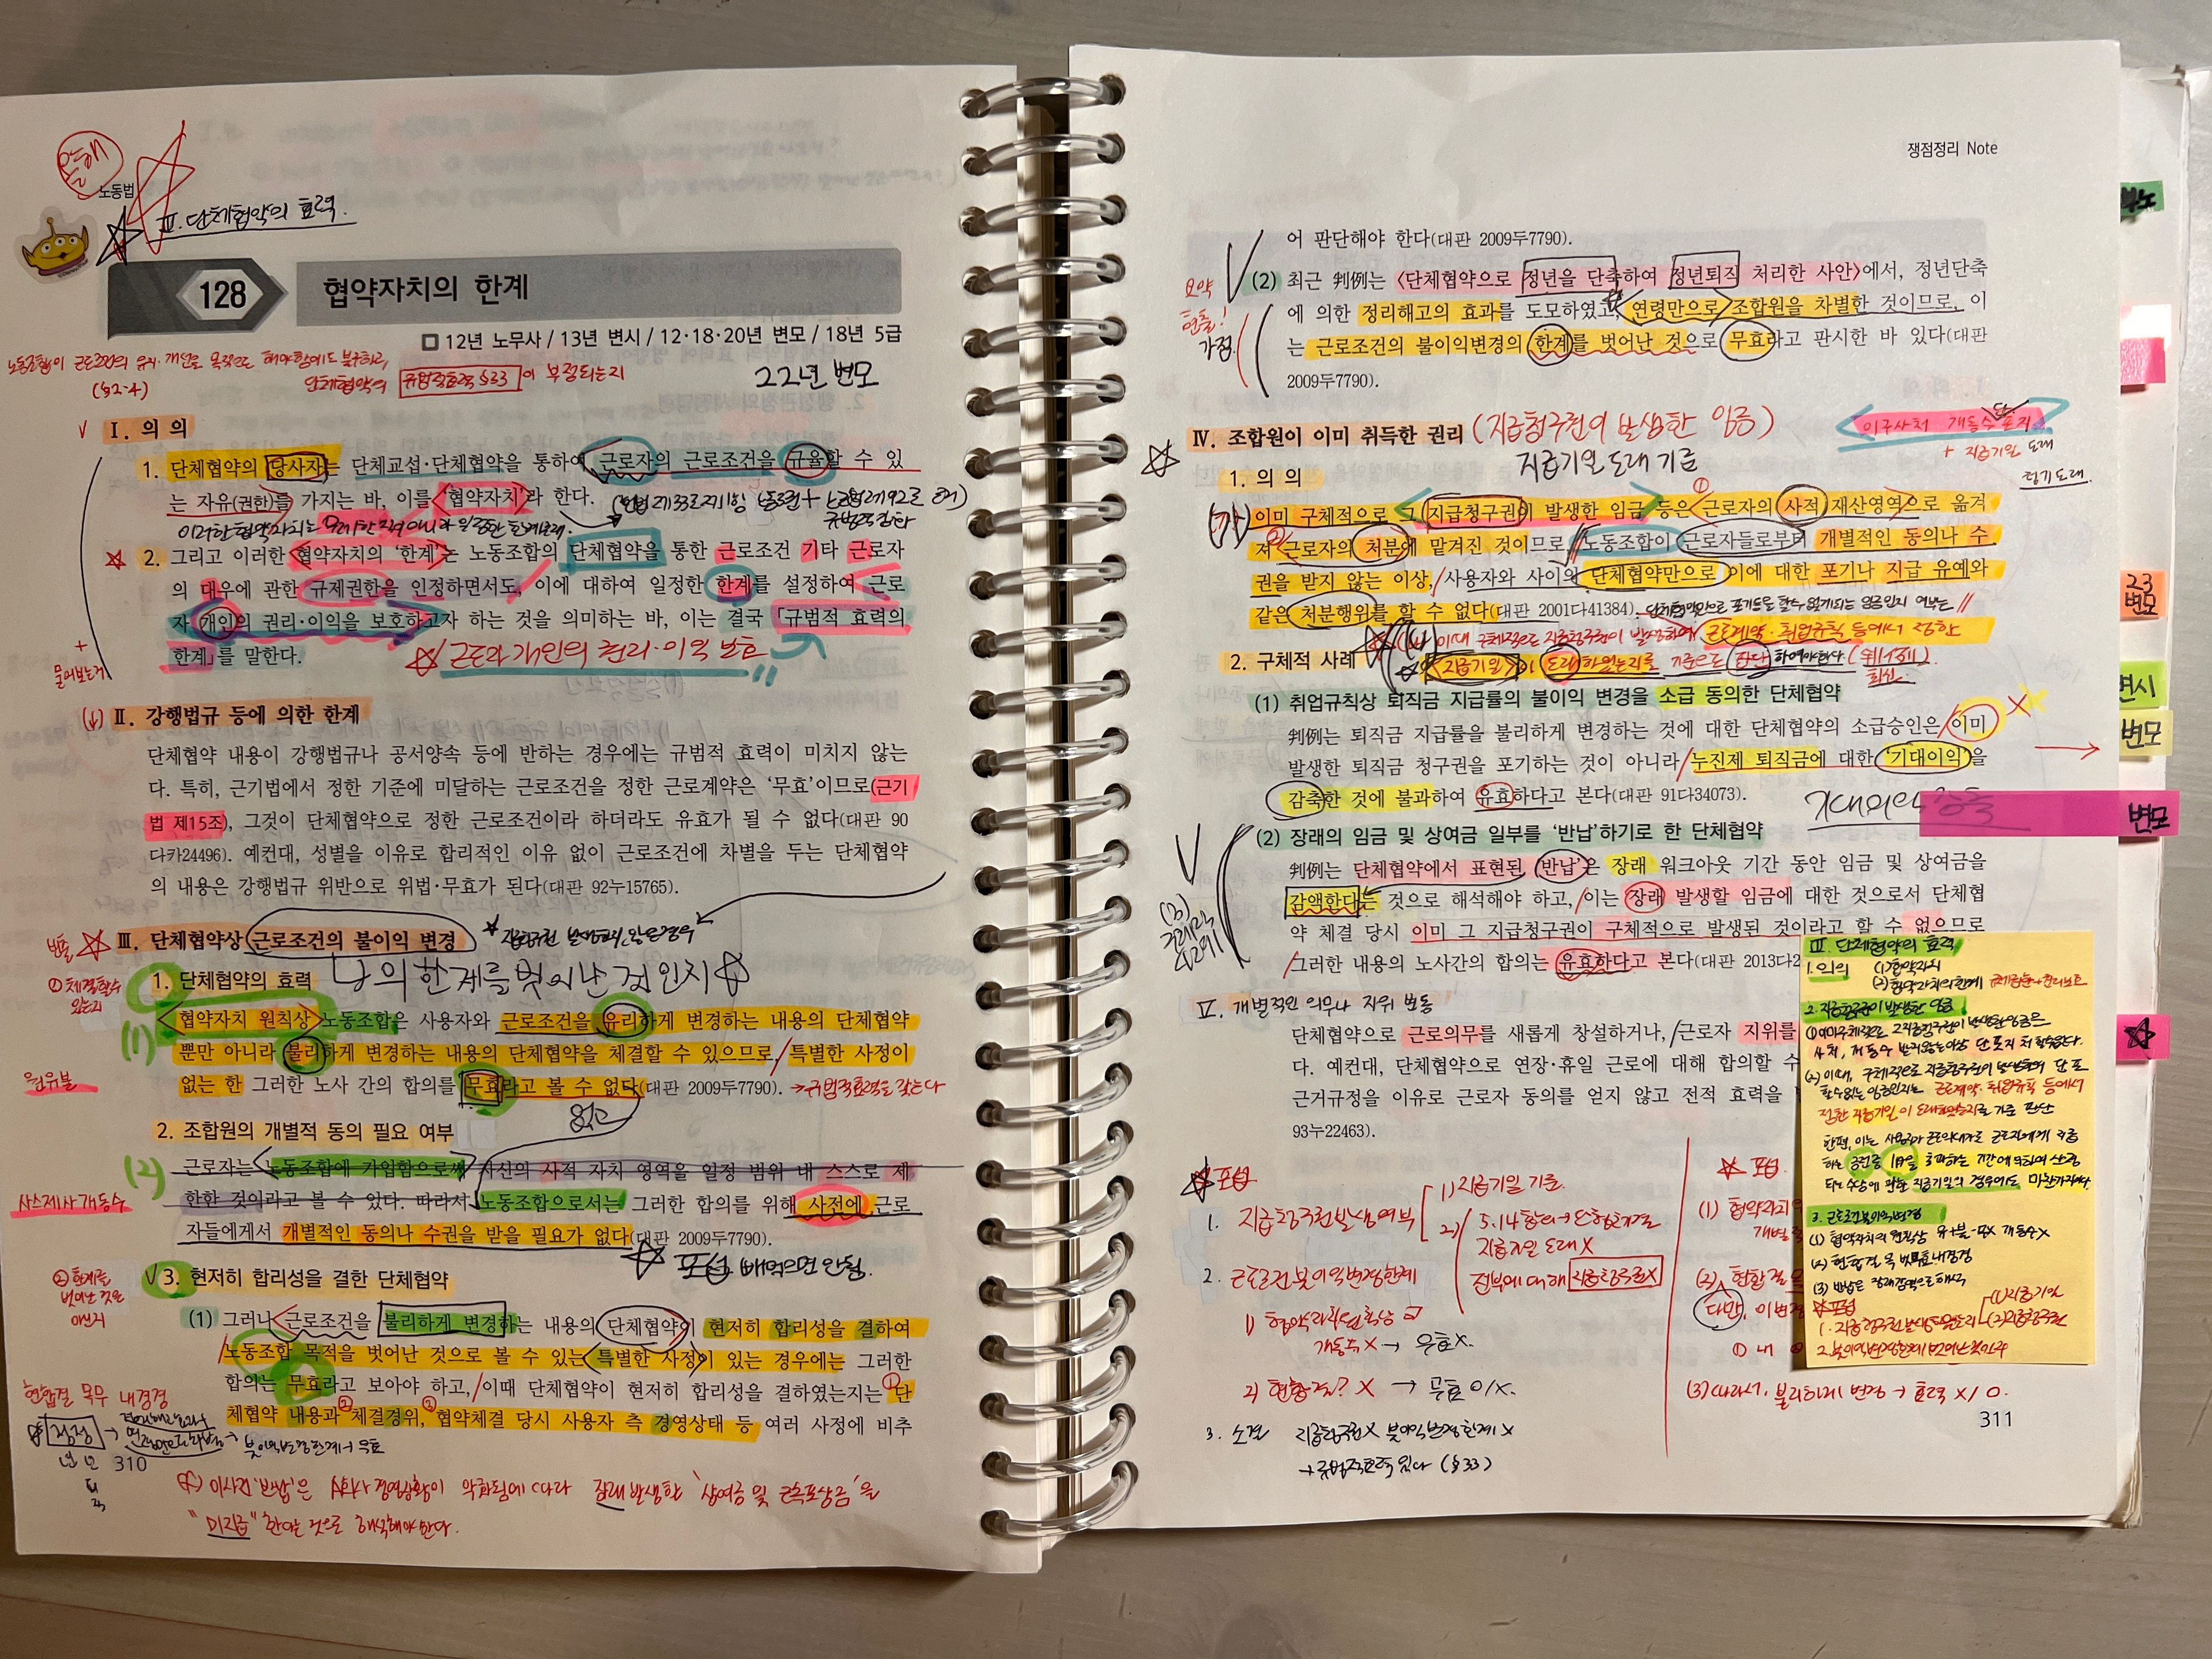 올해
노동법
II. 단체협약의 효력.
128 협약자치의 한계
12년 노무사 / 13년 변시 / 12·18·20년 변모 / 18년 5급
22년 변모
노동조합이 근로조건의 유지·개선을 목적으로 해야함에도 불구하고,
(§2-4) 단체협약의 규범적효력 §33이 부정되는지
I. 의 의
1. 단체협약의 당사자는 단체교섭·단체협약을 통하여 근로자의 근로조건을 규율할 수 있
는 자유(권한)를 가지는 바, 이를 '협약자치'라 한다.
2. 그리고 이러한 협약자치의 '한계'는 노동조합의 단체협약을 통한 근로조건 기타 근로자
의 대우에 관한 규제권한을 인정하면서도, 이에 대하여 일정한 한계를 설정하여 근로
자 개인의 권리·이익을 보호하고자 하는 것을 의미하는 바, 이는 결국 「규범적 효력의
한계」를 말한다.
근로자 개인의 권리·이익 보호
물어보는거
II. 강행법규 등에 의한 한계
단체협약 내용이 강행법규나 공서양속 등에 반하는 경우에는 규범적 효력이 미치지 않는
다. 특히, 근기법에서 정한 기준에 미달하는 근로조건을 정한 근로계약은 '무효'이므로(근기
법 제15조), 그것이 단체협약으로 정한 근로조건이라 하더라도 유효가 될 수 없다(대판 90
다카24496). 예컨대, 성별을 이유로 합리적인 이유 없이 근로조건에 차별을 두는 단체협약
의 내용은 강행법규 위반으로 위법·무효가 된다(대판 92누15765).
III. 단체협약상 근로조건의 불이익 변경
나의 한계를 벗어난 것인지
1. 단체협약의 효력
① 체결할수
있는지
(1) 협약자치 원칙상 노동조합은 사용자와 근로조건을 유리하게 변경하는 내용의 단체협약
뿐만 아니라 불리하게 변경하는 내용의 단체협약을 체결할 수 있으므로, 특별한 사정이
없는 한 그러한 노사 간의 합의를 무효라고 볼 수 없다(대판 2009두7790). →규범적효력을 갖는다
원유불
없고
2. 조합원의 개별적 동의 필요 여부
(2) 근로자는 노동조합에 가입함으로써 자신의 사적 자치 영역을 일정 범위 내 스스로 제
한한 것이라고 볼 수 있다. 따라서 노동조합으로서는 그러한 합의를 위해 사전에 근로
자들에게서 개별적인 동의나 수권을 받을 필요가 없다(대판 2009두7790).
사스제사개동수
포섭 빼먹으면 안됨.
② 한계를
벗어난 것은
아닌지
3. 현저히 합리성을 결한 단체협약
(1) 그러나 근로조건을 불리하게 변경하는 내용의 단체협약이 현저히 합리성을 결하여
노동조합 목적을 벗어난 것으로 볼 수 있는 특별한 사정이 있는 경우에는 그러한
합의는 무효라고 보아야 하고, 이때 단체협약이 현저히 합리성을 결하였는지는 단
체협약 내용과 체결경위, 협약체결 당시 사용자 측 경영상태 등 여러 사정에 비추
현합결 목무 내경경
310
이사건 '반납'은 A회사 경영상황이 악화됨에 따라 장래 발생할 '상여금 및 근속포상금'을
"미지급" 한다는 것으로 해석해야 한다.
쟁점정리 Note
어 판단해야 한다(대판 2009두7790).
(2) 최근 判例는 〈단체협약으로 정년을 단축하여 정년퇴직 처리한 사안〉에서, 정년단축
에 의한 정리해고의 효과를 도모하였고, 연령만으로 조합원을 차별한 것이므로, 이
는 근로조건의 불이익변경의 한계를 벗어난 것으로 무효라고 판시한 바 있다(대판
2009두7790).
요약
현출!
가점.
IV. 조합원이 이미 취득한 권리 (지급청구권이 발생한 임금)
지급기일 도래 기준
이구사처 개동수 포지
+ 지급기일 도래
1. 의 의
이미 구체적으로 그 지급청구권이 발생한 임금 등은 근로자의 사적 재산영역으로 옮겨
져 근로자의 처분에 맡겨진 것이므로, 노동조합이 근로자들로부터 개별적인 동의나 수
권을 받지 않는 이상, 사용자와 사이의 단체협약만으로 이에 대한 포기나 지급 유예와
같은 처분행위를 할 수 없다(대판 2001다41384).
이때 구체적으로 지급청구권이 발생하여 근로계약·취업규칙 등에서 정한
지급기일이 도래하였는지를 기준으로 판단하여야한다
2. 구체적 사례
(1) 취업규칙상 퇴직금 지급률의 불이익 변경을 소급 동의한 단체협약
判例는 퇴직금 지급률을 불리하게 변경하는 것에 대한 단체협약의 소급승인은 이미
발생한 퇴직금 청구권을 포기하는 것이 아니라 누진제 퇴직금에 대한 '기대이익'을
감축한 것에 불과하여 유효하다고 본다(대판 91다34073).
기대이익 감축
(2) 장래의 임금 및 상여금 일부를 '반납'하기로 한 단체협약
判例는 단체협약에서 표현된 '반납'은 장래 워크아웃 기간 동안 임금 및 상여금을
감액한다는 것으로 해석해야 하고, 이는 장래 발생할 임금에 대한 것으로서 단체협
약 체결 당시 이미 그 지급청구권이 구체적으로 발생된 것이라고 할 수 없으므로
그러한 내용의 노사간의 합의는 유효하다고 본다(대판 2013다2
V. 개별적인 의무나 지위 변동
단체협약으로 근로의무를 새롭게 창설하거나, 근로자 지위를
다. 예컨대, 단체협약으로 연장·휴일 근로에 대해 합의할 수
근거규정을 이유로 근로자 동의를 얻지 않고 전적 효력을
93누22463).
포섭
1. 지급청구권발생여부
1) 지급기일 기준.
지급기일 도래 X
전부에 대해 지급청구권X
2. 근로조건 불이익변경한계
1) 협약자치원칙상
개동수 X → 무효X.
2) 현합결? X → 무효 O/X.
3. 소결 지급청구권X 불이익변경한계X
→규범적효력 있다 (§33)
포섭
(1) 협약자치
개별
(2) 현합결
다만, 이번
(3) 따라서, 불리하게 변경 → 효력 X/O.
III. 단체협약의 효력
1. 의의 (1) 협약자치
(2) 협약자치의한계
2. 지급청구권이 발생한 임금
근로계약·취업규칙 등에서
정한 지급기일이 도래하였는지를 기준 판단
3. 근로조건불이익변경
(1) 협약자치의 원칙상
(3) 반납은 장래감액으로 해석
포섭
311
부노
23
변모
변시
변모
변모